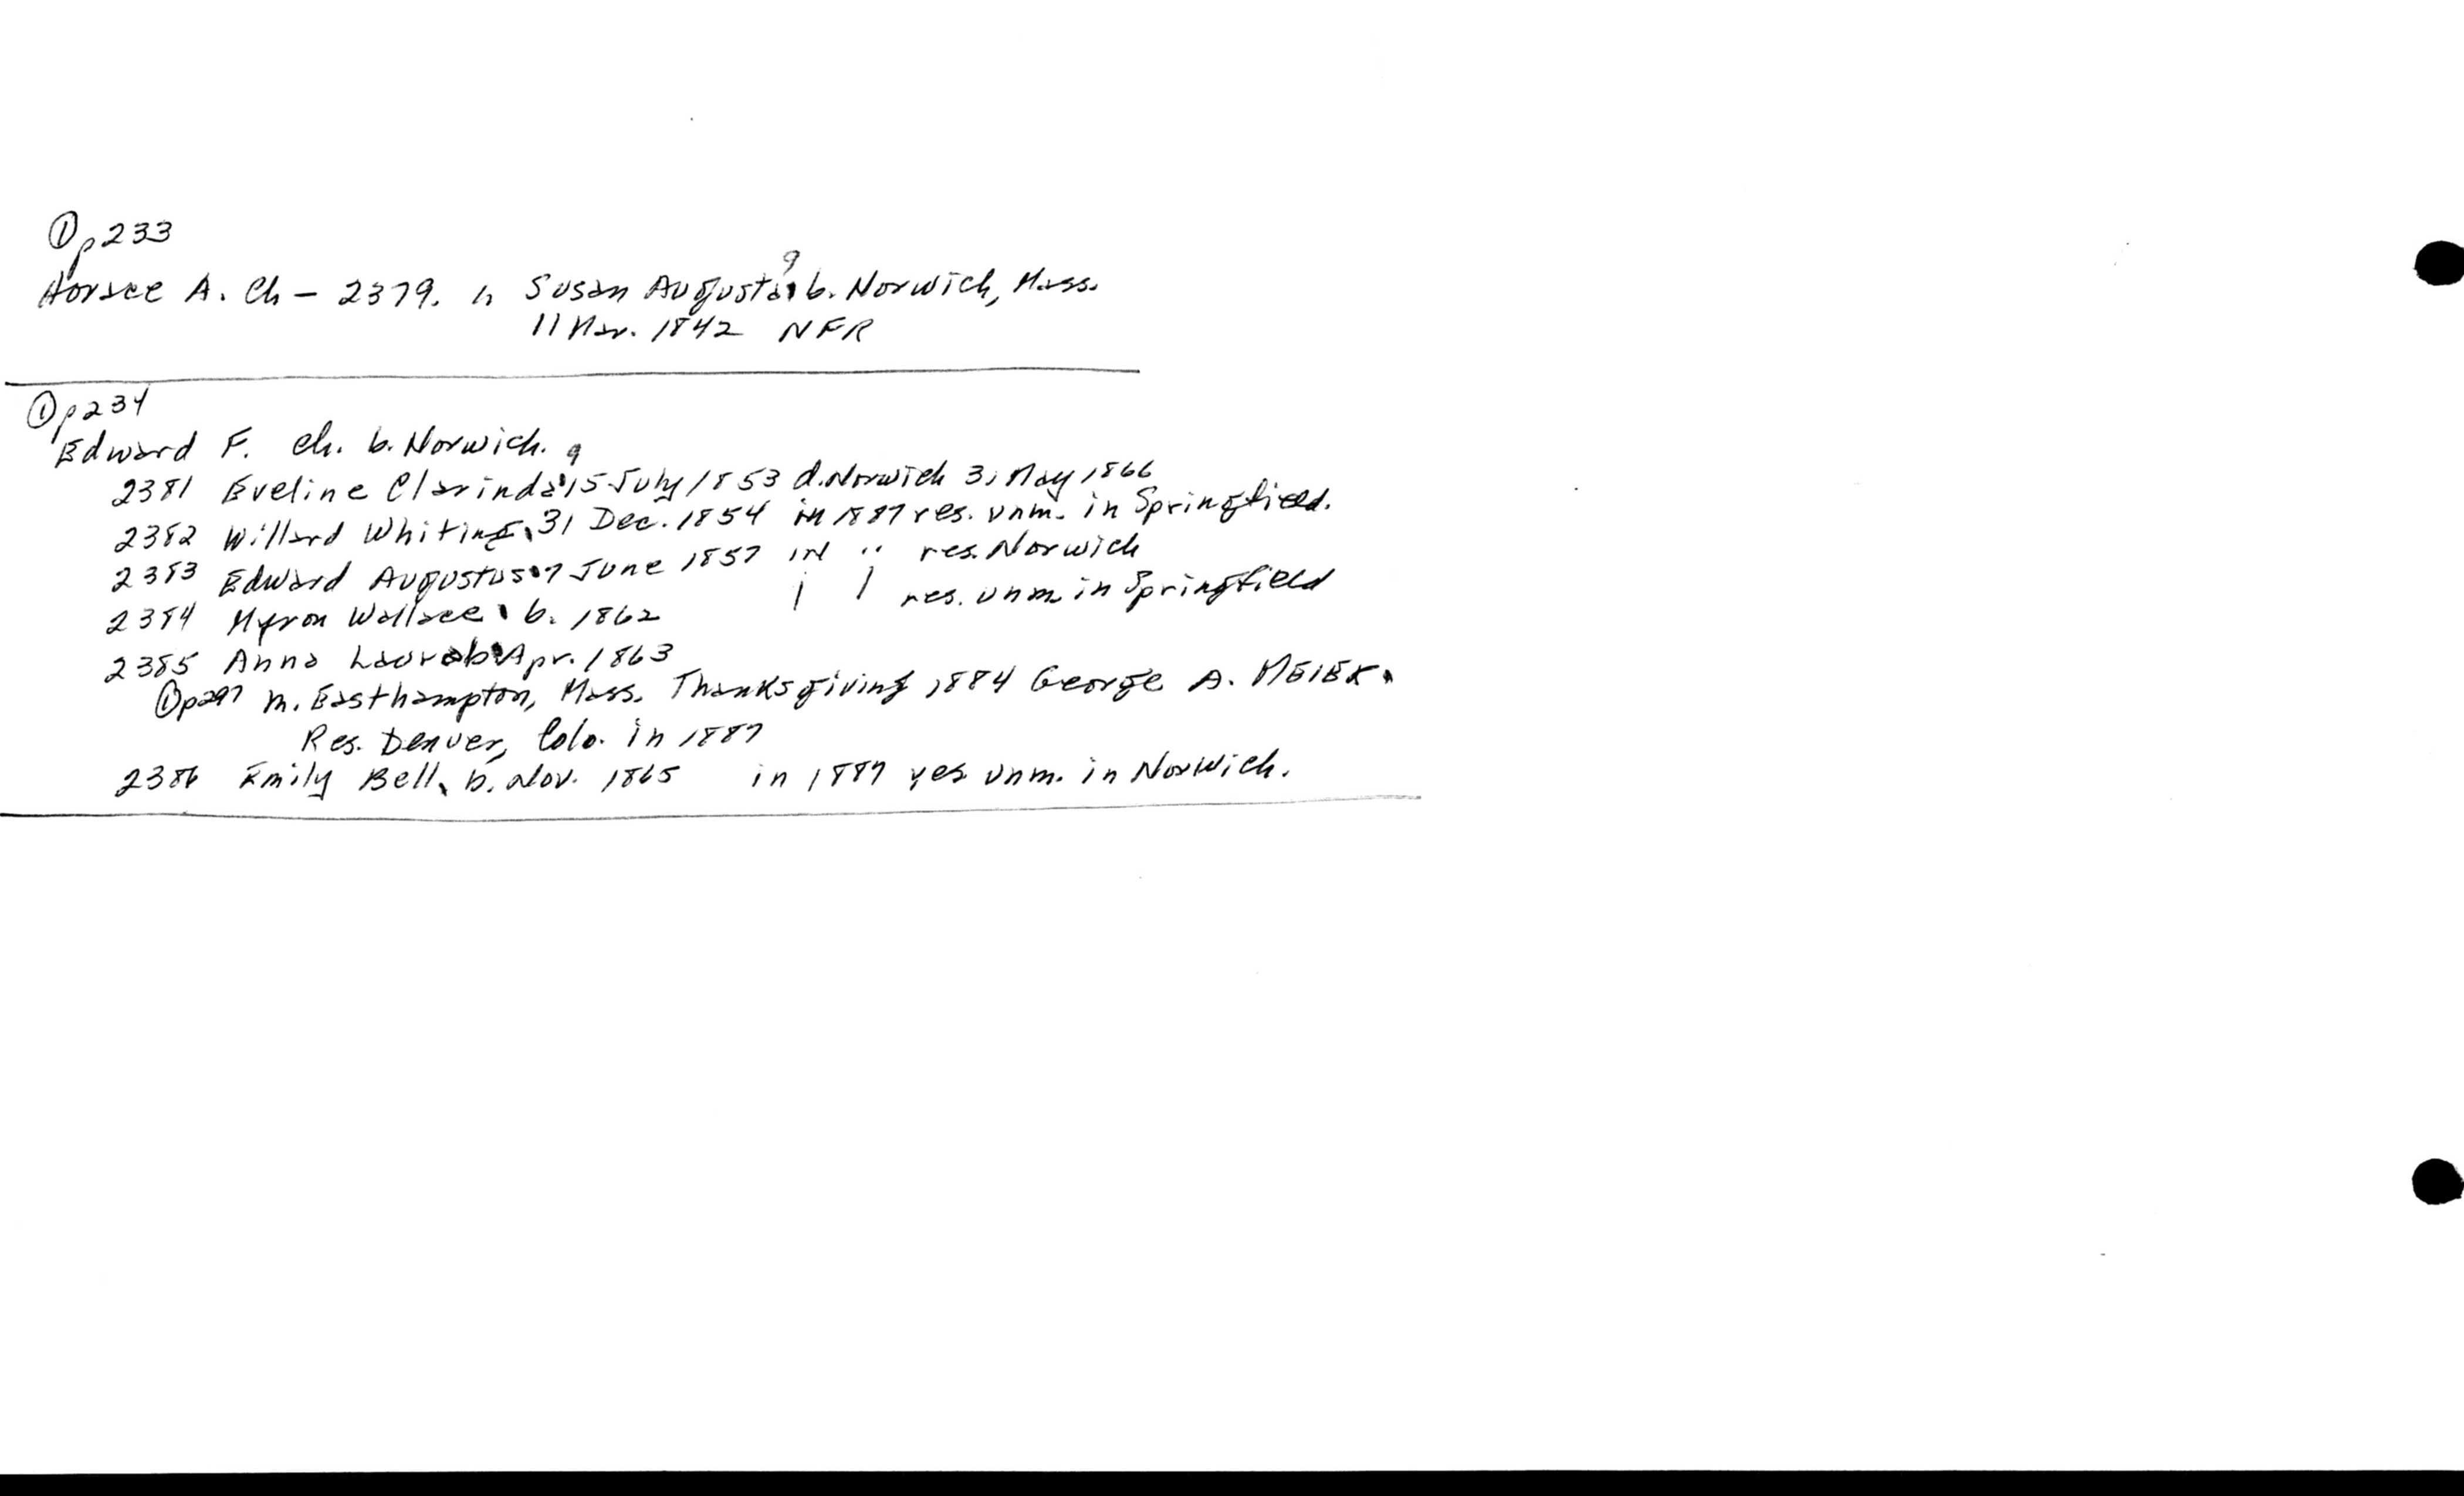 ① p 233
Horace A. Ch – 2379. 1, Susan Augusta⁹, b. Norwich, Mass.
11 Mar. 1842 NFR
① p 234
Edward F. Ch. b. Norwich.
2381 Eveline Clarinda⁹, 15 July 1853 d. Norwich 31 May 1866
2382 Willard Whiting, 31 Dec. 1854 in 1887 res. unm. in Springfield.
2383 Edward Augustus, 7 June 1857 in " res. Norwich
2384 Myron Wallace, b. 1862 | | res. unm. in Springfield
2385 Anna Laura b. Apr. 1863
① p297 m. Easthampton, Mass. Thanksgiving 1884 George A. MEIER.
Res. Denver, Colo. in 1887
2386 Emily Bell, b. Nov. 1865 in 1887 res unm. in Norwich.